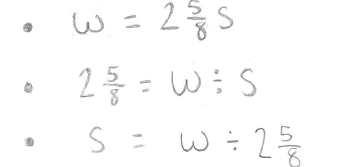 • w = 2 5/8 S
• 2 5/8 = W ÷ S
• S = w ÷ 2 5/8